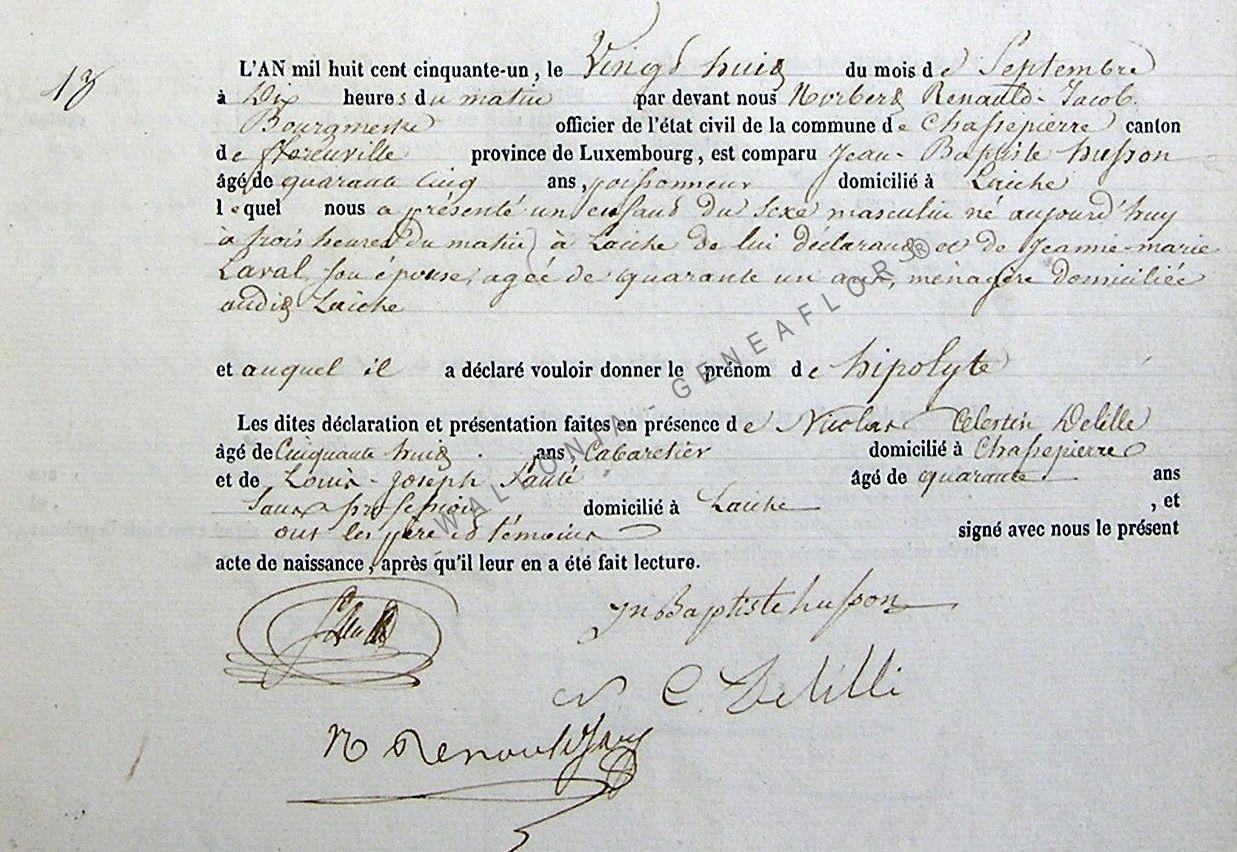 13
L'AN mil huit cent cinquante-un, le Vingt huit du mois de Septembre
à Dix heures du matin par devant nous Norbert Renauld-Jacob.
Bourgmestre officier de l'état civil de la commune de Chassepierre canton
de Florenville province de Luxembourg, est comparu Jean-Baptiste husson
âgé de quarante cinq ans, poissonneur domicilié à Laiche
lequel nous a présenté un enfant du sexe masculin né aujourd'huy
à trois heures du matin à Laiche de lui déclarant et de Jeanne-marie
Laval, son épouse, agée de quarante un ans, ménagère domiciliée
audit Laiche
et auquel il a déclaré vouloir donner le prénom de hipolyte
Les dites déclaration et présentation faites en présence de Nicolas Celestin Delille
âgé de Cinquante huit ans, Cabaretier domicilié à Chassepierre
et de Louis-Joseph âgé de quarante ans
Sans profession domicilié à Laiche, et
ont les père et témoins signé avec nous le présent
acte de naissance, après qu'il leur en a été fait lecture.
Jn Baptiste husson
N C. Delille
N Renauld
WALLONIA-GENEAFLOR®